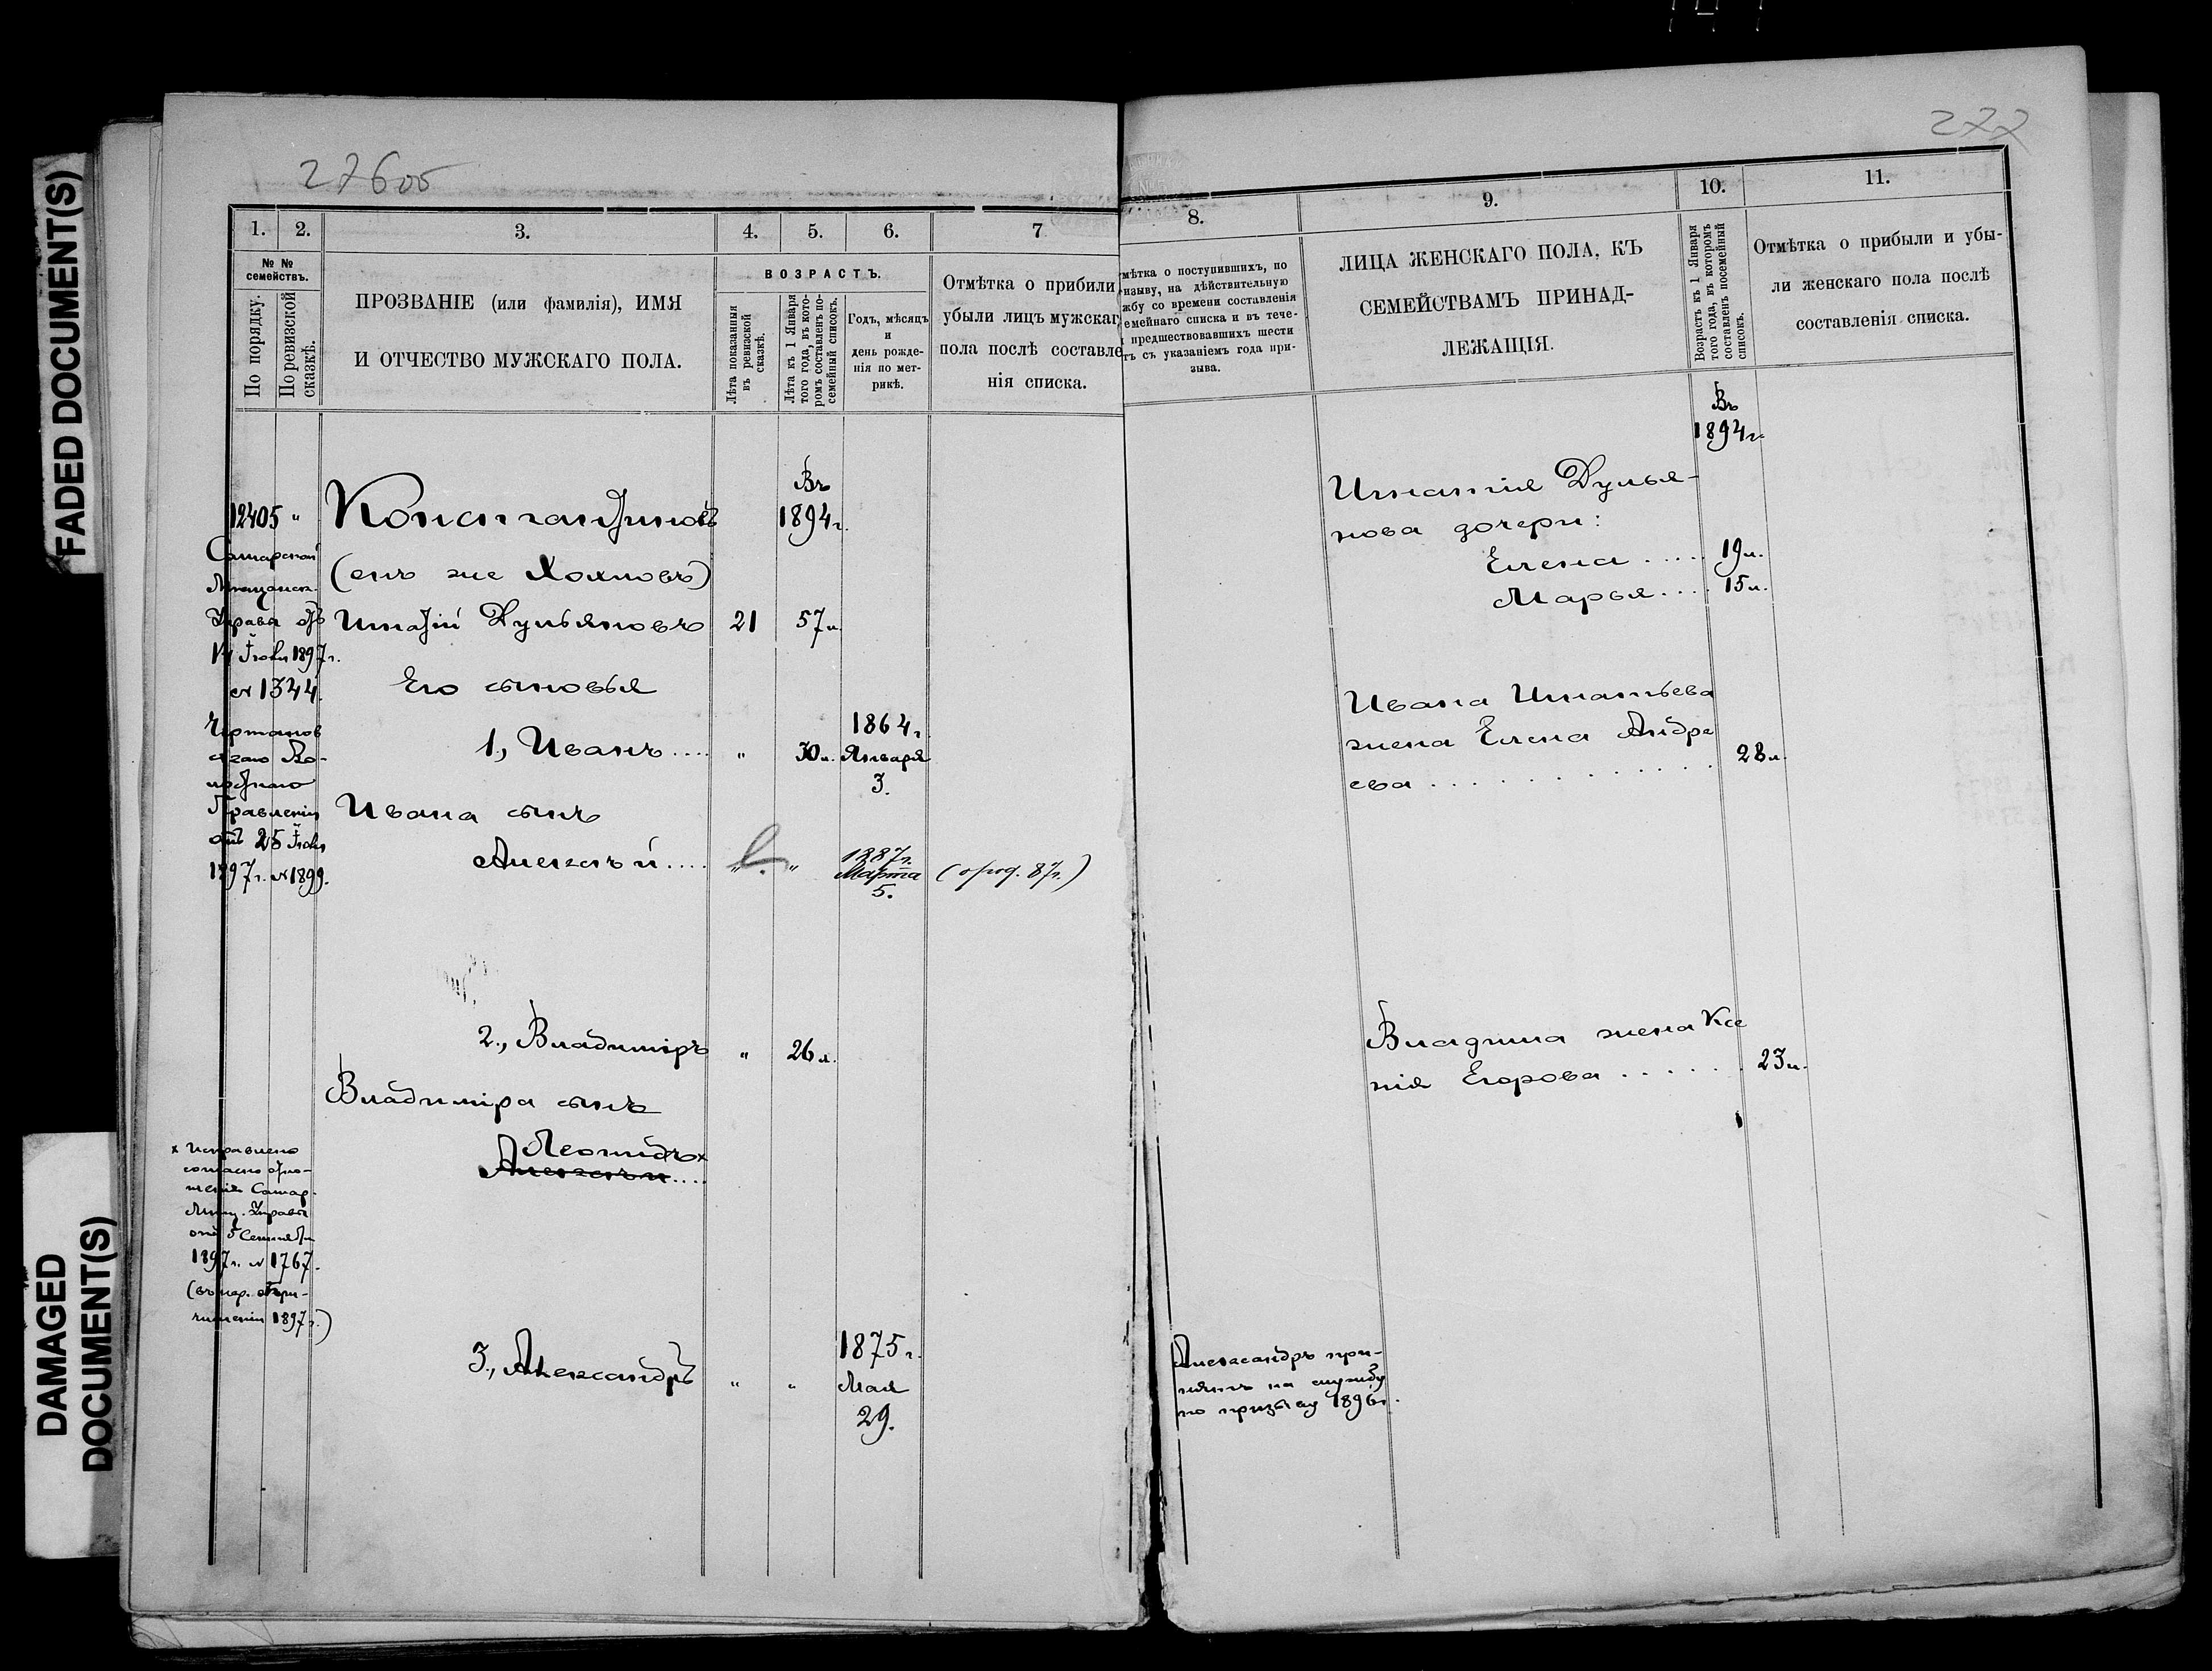 FADED DOCUMENT(S)
DAMAGED
DOCUMENT(S)
276об
1. 2. 3. 4. 5. 6. 7
№ №
семействъ.
По порядку.
По ревизской
сказкѣ.
ПРОЗВАНІЕ (или фамилія), ИМЯ
И ОТЧЕСТВО МУЖСКАГО ПОЛА.
ВОЗРАСТЪ.
Лѣта показанныя
въ ревизской
сказкѣ.
Лѣта къ 1 Января
того года, въ кото-
ромъ составленъ по-
семейный списокъ.
Годъ, мѣсяцъ
и
день рожде-
нія по мет-
рикѣ.
Отмѣтка о прибили
убыли лицъ мужскаг
пола послѣ составле
нія списка.
12405 "
Самарской
Мѣщанск.
Управы отъ
14 Іюля 1897 г.
№ 1344.
Чертанов
скаго Во-
лостнаго
Правленія
отъ 25 Іюля
1897 г. № 1899.
Константиновъ
Въ
1894 г.
(онъ же Холновъ)
Игнатій Дульяновъ 21 57 л.
Его сыновья
1., Иванъ .... " 30 л. 1864 г.
Января
3.
Ивана сынъ
Алексѣй .... " " 1887 г.
Марта
5.
(о род. 87 г.)
2., Владиміръ " 26 л.
Владиміра сынъ
Леонидъ x
Алексѣй ....
x Исправлено
согласно отно-
шенія Самар.
Мѣщ. Управы
отъ 5 Сентября
1897 г. № 1767.
(въ пер. о при-
численіи 1897 г.)
3., Александръ " " 1875 г.
Мая
29.
277
8. 9. 10. 11.
мѣтка о поступившихъ, по
изыву, на дѣйствительную
жбу со времени составленія
емейнаго списка и въ тече-
предшествовавшихъ шести
тъ съ указаніемъ года при-
зыва.
ЛИЦА ЖЕНСКАГО ПОЛА, КЪ
СЕМЕЙСТВАМЪ ПРИНАД-
ЛЕЖАЩІЯ.
Возрастъ къ 1 Января
того года, въ которомъ
составленъ посемейный
списокъ.
Отмѣтка о прибыли и убы-
ли женскаго пола послѣ
составленія списка.
Въ
1894 г.
Игнатія Дулья-
нова дочери:
Елена ..... 19 л.
Марья .... 15 л.
Ивана Игнатьева
жена Елена Андре
ева ............. 28 л.
Владима жена Ксе
нія Егорова ...... 23 л.
Александръ при-
нятъ на службу
по призыву 1896 г.